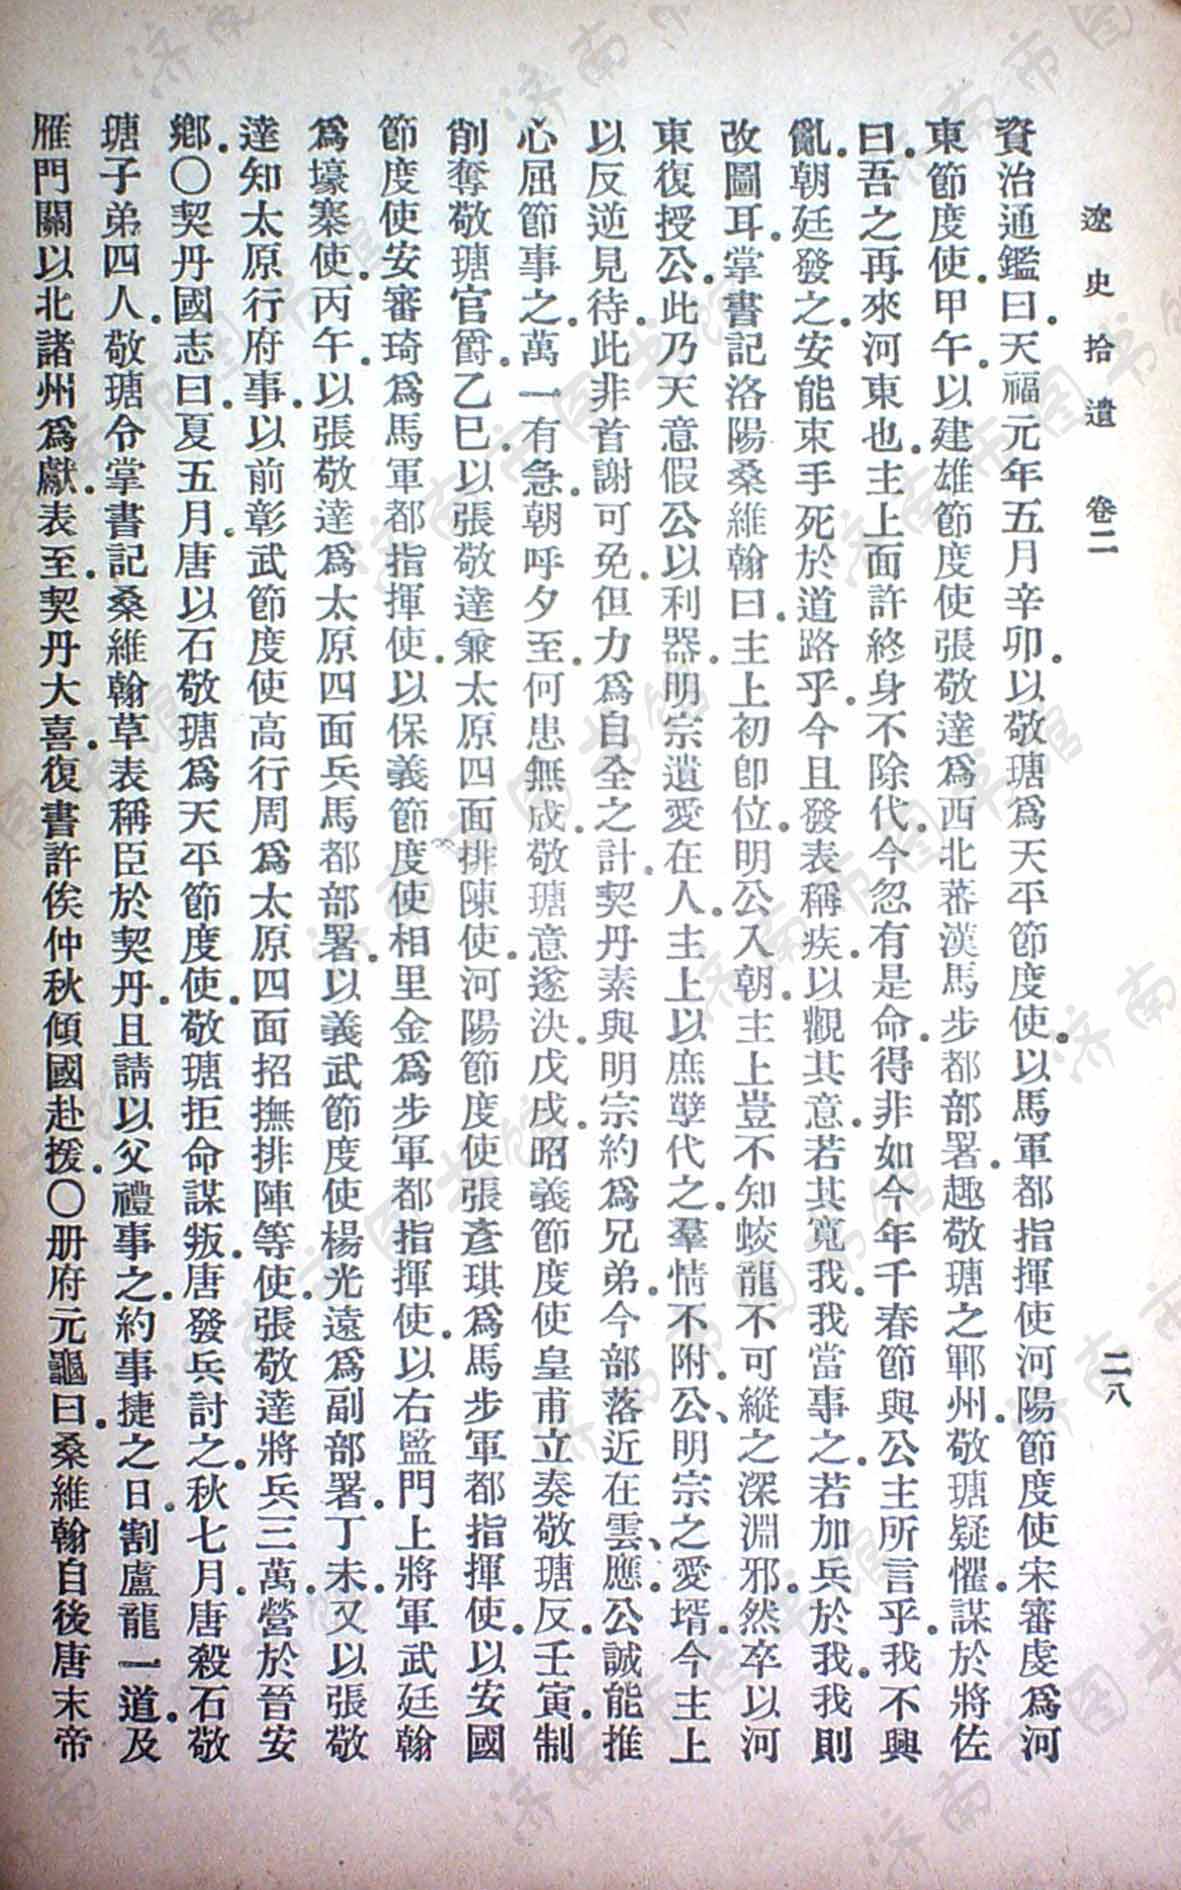 遼史拾遺　卷二　二八
資治通鑑曰。天福元年五月辛卯。以敬瑭爲天平節度使。以馬軍都指揮使河陽節度使宋審虔爲河
東節度使。甲午。以建雄節度使張敬達爲西北蕃漢馬步都部署。趣敬瑭之鄆州。敬瑭疑懼。謀於將佐
曰。吾之再來河東也。主上面許終身不除代。今忽有是命。得非如今年千春節與公主所言乎。我不興
亂。朝廷發之。安能束手死於道路乎。今且發表稱疾。以觀其意。若其寬我。我當事之。若加兵於我。我則
改圖耳。掌書記洛陽桑維翰曰。主上初卽位。明公入朝。主上豈不知蛟龍不可縱之深淵邪。然卒以河
東復授公。此乃天意假公以利器。明宗遺愛在人。主上以庶孽代之。羣情不附。公、明宗之愛壻。今主上
以反逆見待。此非首謝可免。但力爲自全之計。契丹素與明宗約爲兄弟。今部落近在雲、應。公誠能推
心屈節事之。萬一有急。朝呼夕至。何患無成。敬瑭意遂決。戊戌。昭義節度使皇甫立奏敬瑭反。壬寅。制
削奪敬瑭官爵。乙巳。以張敬達兼太原四面排陳使。河陽節度使張彥琪爲馬步軍都指揮使。以安國
節度使安審琦爲馬軍都指揮使。以保義節度使相里金爲步軍都指揮使。以右監門上將軍武廷翰
爲壕寨使。丙午。以張敬達爲太原四面兵馬都部署。以義武節度使楊光遠爲副部署。丁未。又以張敬
達知太原行府事。以前彰武節度使高行周爲太原四面招撫排陣等使。張敬達將兵三萬。營於晉安
鄉。〇契丹國志曰。夏五月。唐以石敬瑭爲天平節度使。敬瑭拒命謀叛。唐發兵討之。秋七月。唐殺石敬
瑭子弟四人。敬瑭令掌書記桑維翰草表稱臣於契丹。且請以父禮事之。約事捷之日。割盧龍一道。及
雁門關以北諸州爲獻。表至。契丹大喜。復書許俟仲秋傾國赴援。〇册府元龜曰。桑維翰自後唐末帝
济南市图书馆